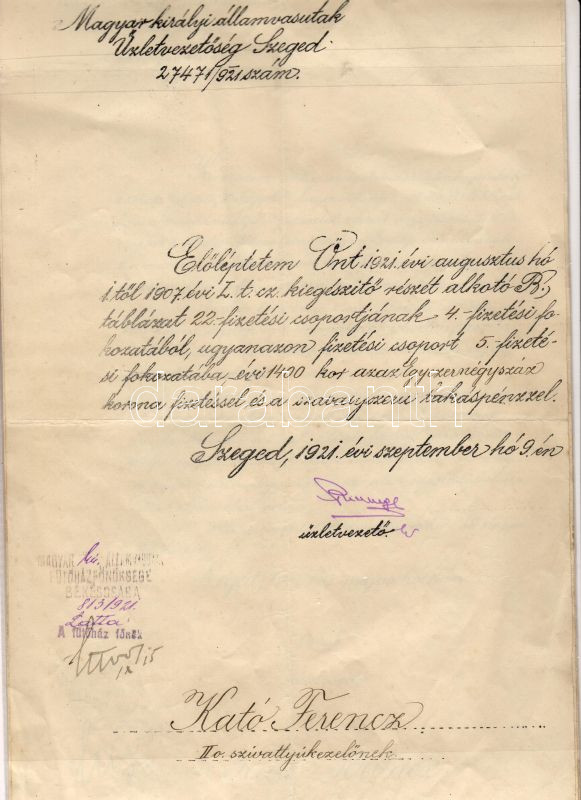 Magyar királyi államvasutak
Üzletvezetőség Szeged.
27471/921 szám.
Előléptetem Önt 1921. évi augusztus hó
1.től 1907. évi L. t. cz. kiegészitő részét alkotó B.
táblázat 22. fizetési csoportjának 4. fizetési fo-
kozatából, ugyanazon fizetési csoport 5. fizeté-
si fokozatába évi 1400 kor azaz Egyezernégyszáz
korona fizetéssel és a szabályszerű lakáspénzzel.
Szeged, 1921. évi szeptember hó 9.én
üzletvezető.
MAGYAR kir. ÁLLAMVASUTAK
FŰTŐHÁZFŐNÖKSÉGE
BÉKÉSCSABA
813/921.
Látta:
A fűtőház főnök
Kató Ferencz
II o. szivattyúkezelőnek
darabanth